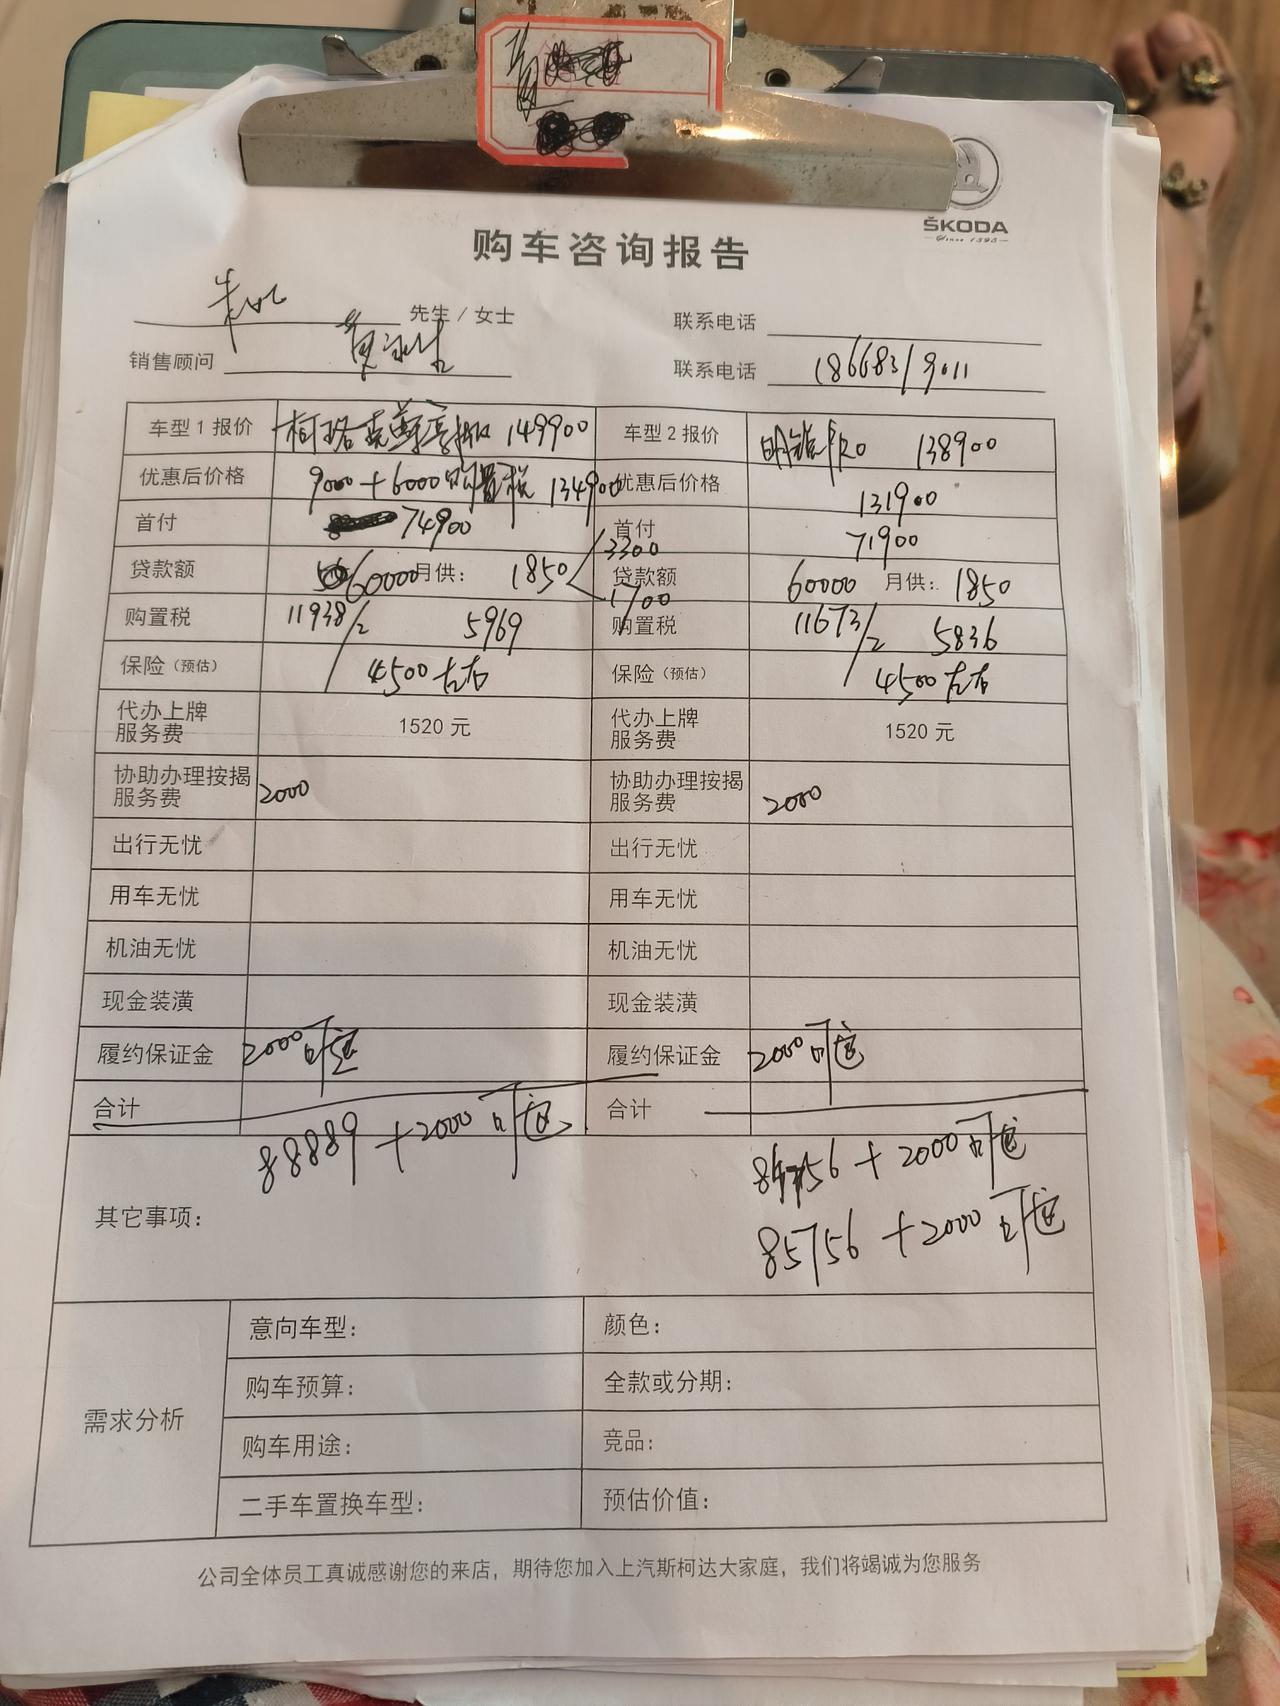 ŠKODA
Since 1895
购车咨询报告
先生 / 女士 联系电话
销售顾问 联系电话 18668319011
车型1报价 柯珞克 149900 车型2报价 明锐PRO 138900
优惠后价格 9000+6000购置税 134900 优惠后价格 131900
首付 74900 首付 71900
3300
贷款额 60000 月供: 1850 贷款额 60000 月供: 1850
1700
购置税 11938/2 5969 购置税 11673/2 5836
保险(预估) 4500左右 保险(预估) 4500左右
代办上牌服务费 1520元 代办上牌服务费 1520元
协助办理按揭服务费 2000 协助办理按揭服务费 2000
出行无忧 出行无忧
用车无忧 用车无忧
机油无忧 机油无忧
现金装潢 现金装潢
履约保证金 2000可退 履约保证金 2000可退
合计 合计
88889+2000可退 +2000可退
其它事项: 85756+2000可退
需求分析
意向车型: 颜色:
购车预算: 全款或分期:
购车用途: 竞品:
二手车置换车型: 预估价值:
公司全体员工真诚感谢您的来店，期待您加入上汽斯柯达大家庭，我们将竭诚为您服务